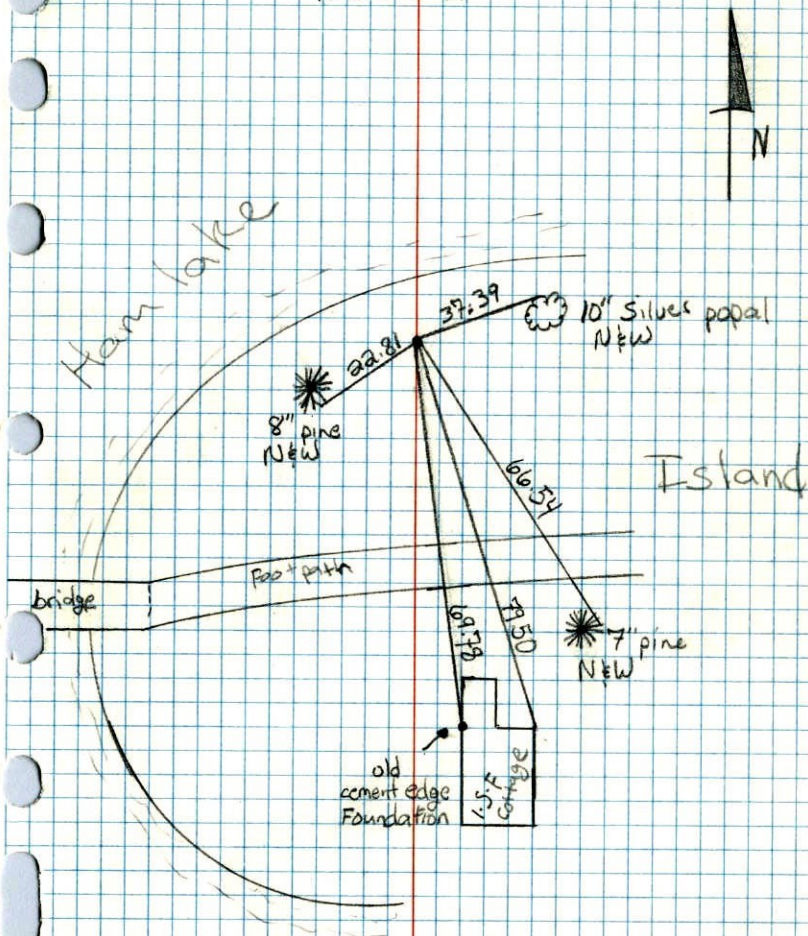 N
Ham lake
37.39
10" Silver popal
N&W
22.81
8" pine
N&W
66.54
Island
Footpath
bridge
69.78
79.50
7" pine
N&W
old
cement edge
Foundation
1.S.F
Cottage